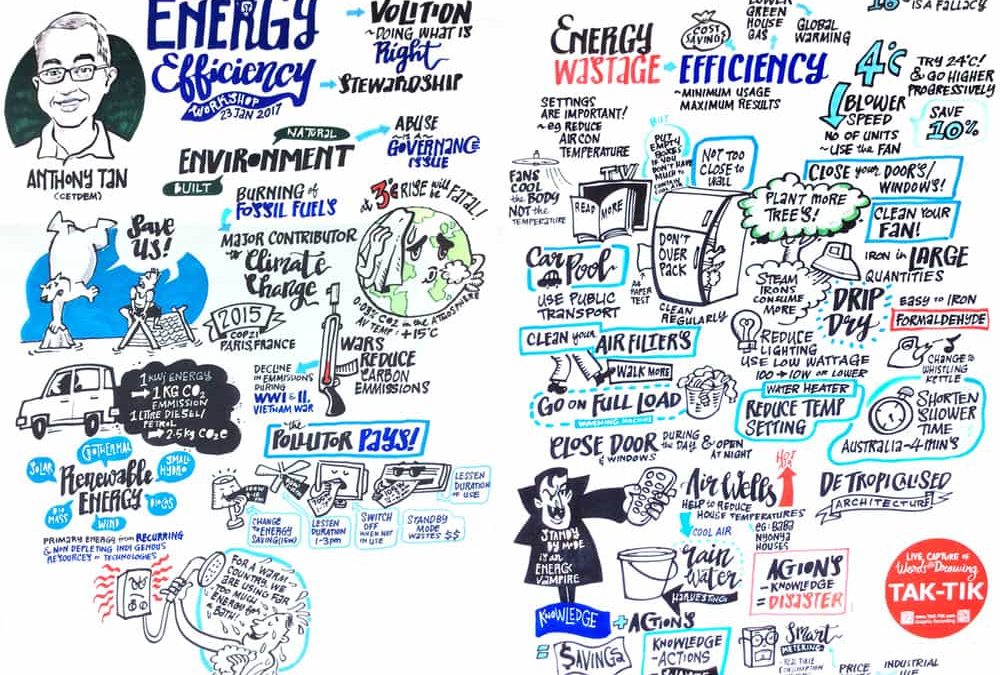 ENERGY
Efficiency
WORKSHOP
23 JAN 2017
VOLITION
~DOING WHAT IS
Right
STEWARDSHIP
ANTHONY TAN
(CETDEM)
NATURAL
ENVIRONMENT
BUILT
ABUSE
~IS A~
GOVERNANCE
ISSUE
BURNING of
FOSSIL FUELS
MAJOR CONTRIBUTOR
Climate
Change
at 3°C RISE will be FATAL!
0.03% CO2 in the ATMOSPHERE
AV TEMP: +15°C
Save
us!
2015
COP21
PARIS, FRANCE
DECLINE
IN EMMISSIONS
DURING
WWI & II,
VIETNAM WAR
WARS
REDUCE
CARBON
EMMISSIONS
1 KWJ ENERGY
1 KG CO2
EMMISSION
1 LITRE DIESEL/
PETROL
2.5 kg CO2e
the
POLLUTOR PAYS!
SOLAR
GEOTHERMAL
SMALL
HYDRO
Renewable
ENERGY
BIO
MASS
WIND
BIOGAS
PRIMARY ENERGY from RECURRING
& NON DEPLETING INDIGENOUS
RESOURCES or TECHNOLOGIES
CHANGE
to ENERGY
SAVING (15W)
LESSEN
DURATION
1-3pm
SWITCH
OFF
WHEN NOT
IN USE
STANDBY
MODE
WASTES $$
LESSEN
DURATION
OF USE
FOR A WARM
COUNTRY, WE
ARE USING FAR
TOO MUCH
ENERGY for a
BATH!
ENERGY
WASTAGE
COST
SAVINGS
LOWER
GREEN
HOUSE
GAS
GLOBAL
WARMING
EFFICIENCY
~MINIMUM USAGE
MAXIMUM RESULTS
IS A FALLACY
4°C
TRY 24°C!
& GO HIGHER
PROGRESSIVELY
BLOWER
SPEED
NO OF UNITS
~USE the FAN
SAVE
10%
SETTINGS
ARE IMPORTANT!
~eg REDUCE
AIRCON
TEMPERATURE
FANS
COOL
the BODY
NOT the
TEMPERATURE
TV
READ MORE
BUT
PUT
EMPTY
BOXES
IF YOU
DON'T HAVE
MUCH to
CONTAIN
COOL AIR
NOT TOO
CLOSE to
WALL
DON'T
OVER
PACK
A4
PAPER
TEST
CLEAN
REGULARLY
PLANT MORE
TREE'S!
CLOSE your DOORS/
WINDOWS!
CLEAN YOUR
FAN!
IRON in LARGE
QUANTITIES
STEAM
IRONS
CONSUME
MORE
DRIP
Dry
EASY to IRON
FORMALDEHYDE
Car Pool
USE PUBLIC
TRANSPORT
CLEAN your AIR FILTER'S
WALK MORE
GO ON FULL LOAD
WASHING MACHINE
REDUCE
LIGHTING
USE LOW WATTAGE
100 → 10W or LOWER
WATER HEATER
REDUCE TEMP
SETTING
CHANGE to
WHISTLING
KETTLE
SHORTEN
SHOWER
TIME
AUSTRALIA ~4 MIN'S
CLOSE DOOR
& WINDOWS
DURING
the DAY
& OPEN
AT NIGHT
STANDBY
MODE
is an
ENERGY
VAMPIRE
HOT
AIR
Air Wells
HELP to REDUCE
HOUSE TEMPERATURES
COOL AIR
eg: BABA
NYONYA
HOUSES
DETROPICALISED
ARCHITECTURE!
rain
water
HARVESTING
ACTION'S
-KNOWLEDGE
= DISASTER
LIVE, CAPTURE OF
Words & Drawing
TAK-TIK
KNOWLEDGE
+ ACTION'S
= $AVINGS
KNOWLEDGE
-ACTIONS
Smart
METERING
PRICE
INDUSTRIAL